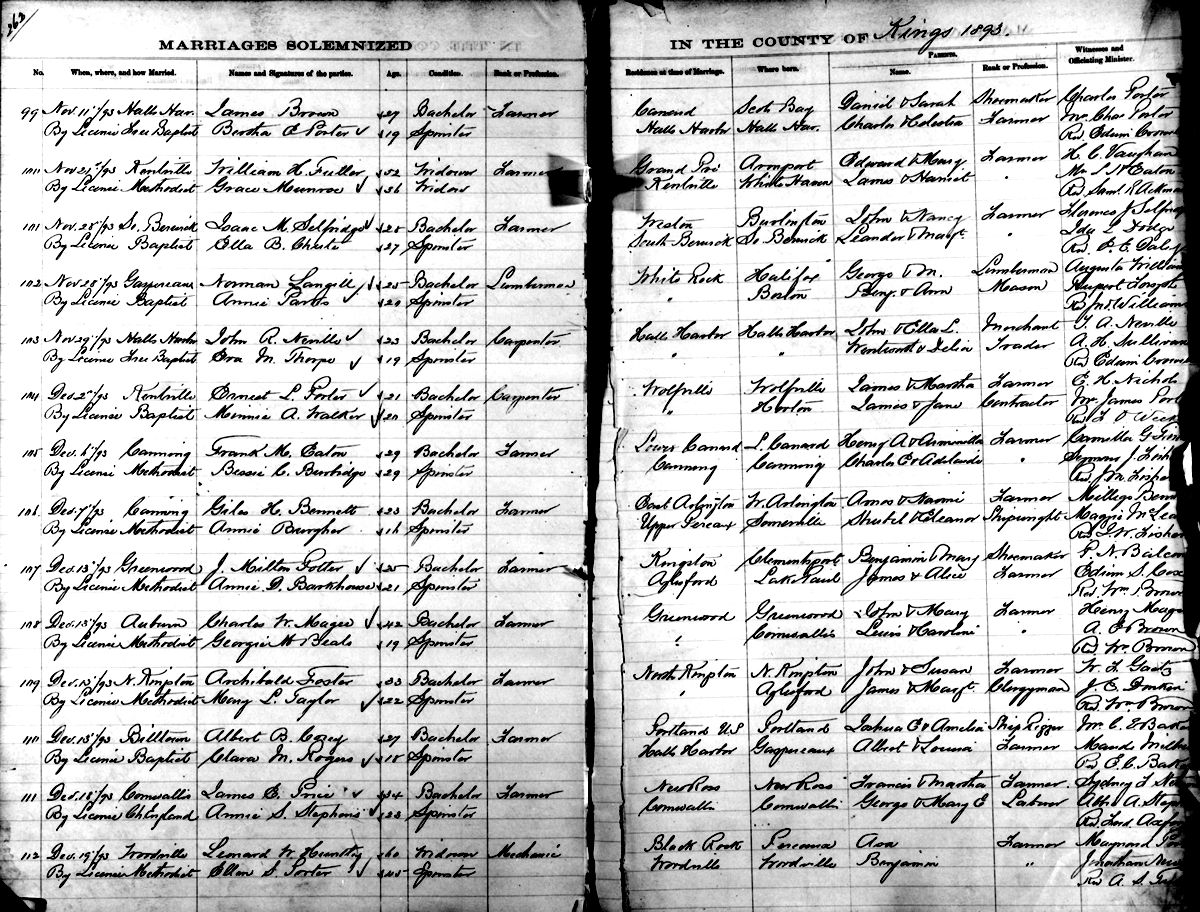 262
MARRIAGES SOLEMNIZED IN THE COUNTY OF Kings 1893.
No. When, where, and how Married. Names and Signatures of the parties. Age. Condition. Rank or Profession. Residence at time of Marriage. Where born. PARENTS. Name. Rank or Profession. Witnesses and Officiating Minister.
99 Nov 11/93 Halls Har. James Brown 27 Bachelor Farmer Canard Scots Bay Daniel & Sarah Shoemaker Charles Porter
By License Free Baptist Bertha Porter 19 Spinster Halls Harbor Halls Har. Charles & Celestia Farmer Mrs Chas Porter
Rev Edwin Crowell
Kentville William H. Fuller 52 Widower Farmer Grand Pré Edward & Mary Farmer H. C. Vaughan
By License Methodist Grace Munroe 36 Widow Kentville White Haven James & Harriet "
Rev Saml R Ackman
101 Nov. 28/93 So. Berwick Isaac M. Selfridge 28 Bachelor Farmer Weston Burlington John & Nancy Farmer Florence J Selfridge
By License Baptist Ella B. Chute 27 Spinster South Berwick So. Berwick Leander & Margt. "
102 Nov 28/93 Gaspereaux Norman Langill 25 Bachelor Lumberman White Rock Halifax George & M. Lumberman Augusta William
By License Baptist Annie Parks 20 Spinster " Boston Benj. & Ann Mason Rupert Forsyth
103 Nov 29/93 Halls Harbor John R. Neville 23 Bachelor Carpenter Halls Harbor Halls Harbor John & Ella L. Merchant T. A. Neville
By License Free Baptist Eva M. Thorpe 19 Spinster " " Wentworth & Delia Trader A. H. Sullivan
Rev Edwin Crowell
104 Dec. 2/93 Kentville Ernest L. Porter 21 Bachelor Carpenter Wolfville Wolfville James & Martha Farmer E. H. Nichols
By License Baptist Minnie A. Walker 20 Spinster " Horton James & Jane Contractor Mrs James
105 Dec. 6/93 Canning Frank M. Eaton 29 Bachelor Farmer Lower Canard L. Canard Henry A & Armanilla Farmer Camella G
By License Methodist Bessie C. Burbidge 29 Spinster Canning Canning Charles E & Adelaide " Seymour J. Fisher
106 Dec. 7/93 Canning Giles H. Bennett 23 Bachelor Farmer East Arlington W. Arlington Amos & Naomi Farmer
By License Methodist Annie Burgher 16 Spinster Upper Pereaux Somerville Eleanor Shipwright Maggie McLea
107 Dec. 13/93 Greenwood J. Milton Potter 25 Bachelor Farmer Kingston Clementsport Benjamin & Mary Shoemaker F. N. Balcom
By License Methodist Annie D. Barkhouse 21 Spinster Aylesford Lake Paul James & Alice Farmer Edwin S. Cox
Rev. Wm Brown
108 Dec. 13/93 Auburn Charles W. Magee 42 Bachelor Farmer Greenwood Greenwood John & Mary Farmer Henry Mage
By License Methodist Georgie W Beals 19 Spinster " Cornwallis Lewis & Caroline " A. E Brown
Rev Wm Brown
109 Dec. 13/93 N. Kingston Archibald Foster 33 Bachelor Farmer North Kingston N. Kingston John & Susan Farmer W. L. Gaetz
By License Methodist Mary L. Taylor 22 Spinster " Aylesford James & Margt. Clergyman J. E. Donkin
Rev. Wm Brown
110 Dec. 13/93 Billtown Albert B. 27 Bachelor Farmer Portland US Portland Joshua C & Amelia Ship Rigger
By License Baptist Clara M. Rogers 18 Spinster Halls Harbor Gaspereaux Albert & Louisa Farmer Maud
111 Dec. 18/93 Cornwallis James E. Price 34 Bachelor Farmer New Ross New Ross Francis & Martha Farmer Sydney
By License Ch England Annie S. Stephens 23 Spinster Cornwallis Cornwallis George & Mary E Laborer
112 Dec. 19/93 Woodville Leonard W. Huntley 60 Widower Mechanic Black Rock Pereaux Asa Farmer Maynard
By License Methodist Ellen S. Porter 45 Spinster Woodville Woodville Benjamin " Jonathan
Rev A. S.